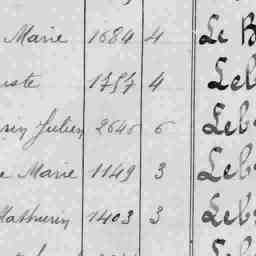 Marie 1684 4 Le B
uste 1757 4 Leb
Julien 2646 6 Leb
Marie 1149 3 Leb
Mathurin 1403 3 Leb